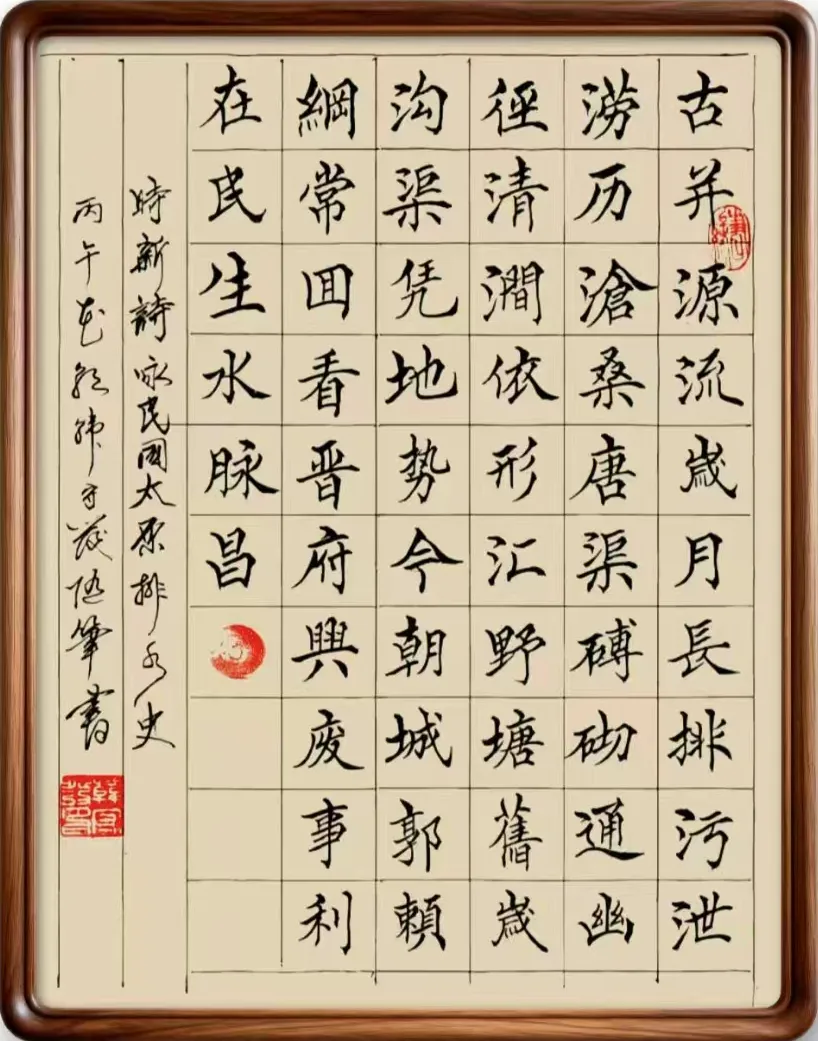 古并源流歲月長排污泄
涝历滄桑唐渠磚砌通幽
徑清澗依形汇野塘舊歲
沟渠凭地势今朝城郭賴
綱常回看晋府興废事利
在民生水脉昌
時新詩咏民國太原排水史
丙午 韩守 随筆書